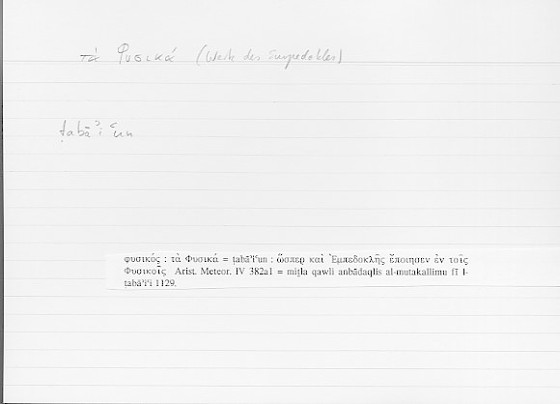 τὰ Φυσικά (Werk des Empedokles)
ṭabāʾiʿun
φυσικός : τὰ Φυσικά = ṭabāʾiʿun : ὥσπερ καὶ Ἐμπεδοκλῆς ἐποίησεν ἐν τοῖς
Φυσικοῖς Arist. Meteor. IV 382a1 = miṯla qawli anbādaqlis al-mutakallimu fī l-
ṭabāʾiʿi 1129.